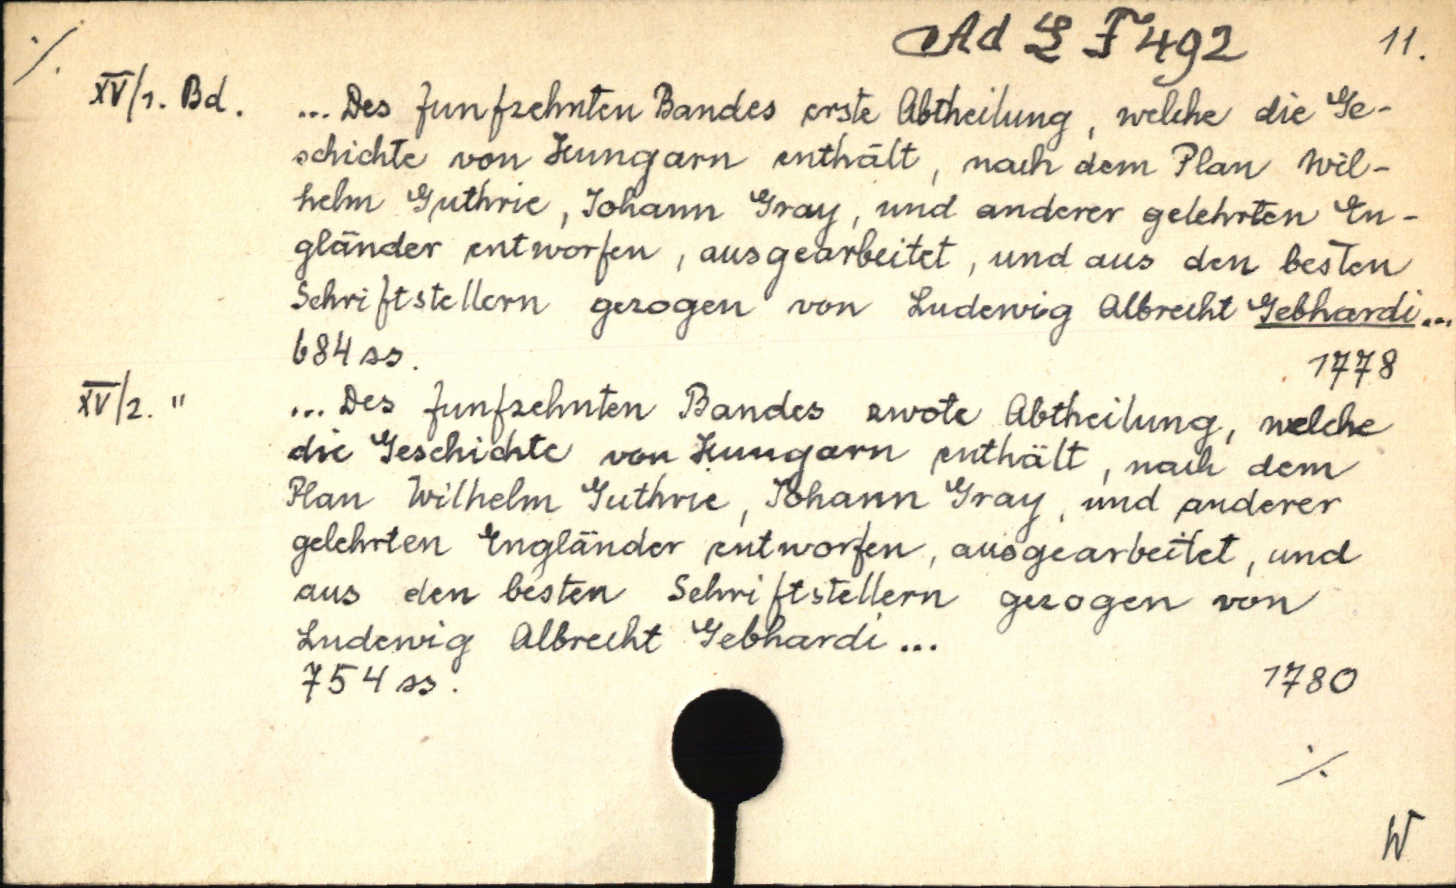 ./. Ad L F 492 11.
XV/1. Bd. ... Des funfzehnten Bandes erste Abtheilung, welche die Ge-
schichte von Hungarn enthält, nach dem Plan Wil-
helm Guthrie, Johann Gray, und anderer gelehrten En-
gländer entworfen, ausgearbeitet, und aus den besten
Schriftstellern gezogen von Ludewig Albrecht Gebhardi...
684 ss. 1778
XV/2. " ... Des funfzehnten Bandes zwote Abtheilung, welche
die Geschichte von Hungarn enthält, nach dem
Plan Wilhelm Guthrie, Johann Gray, und anderer
gelehrten Engländer entworfen, ausgearbeitet, und
aus den besten Schriftstellern gezogen von
Ludewig Albrecht Gebhardi...
754 ss. 1780
./.
W